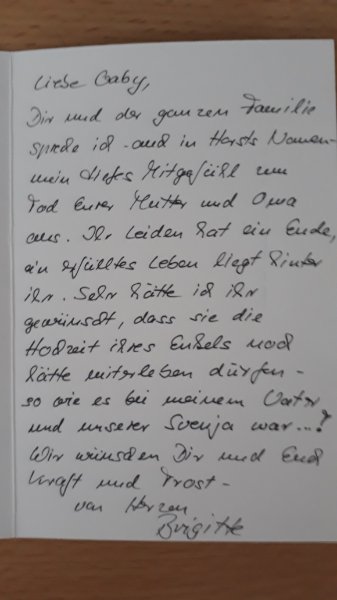 Liebe Gaby,
Dir und der ganzen Familie
spreche ich - auch in Horsts Namen -
mein tiefes Mitgefühl zum
Tod Eurer Mutter und Oma
aus. Ihr Leiden hat ein Ende,
ein erfülltes Leben liegt hinter
ihr. Sehr hätte ich ihr
gewünscht, dass sie die
Hochzeit ihres Enkels noch
hätte miterleben dürfen -
so wie es bei meinem Vater
und unserer Svenja war...!
Wir wünschen Dir und Euch
Kraft und Trost -
von Herzen
Brigitte